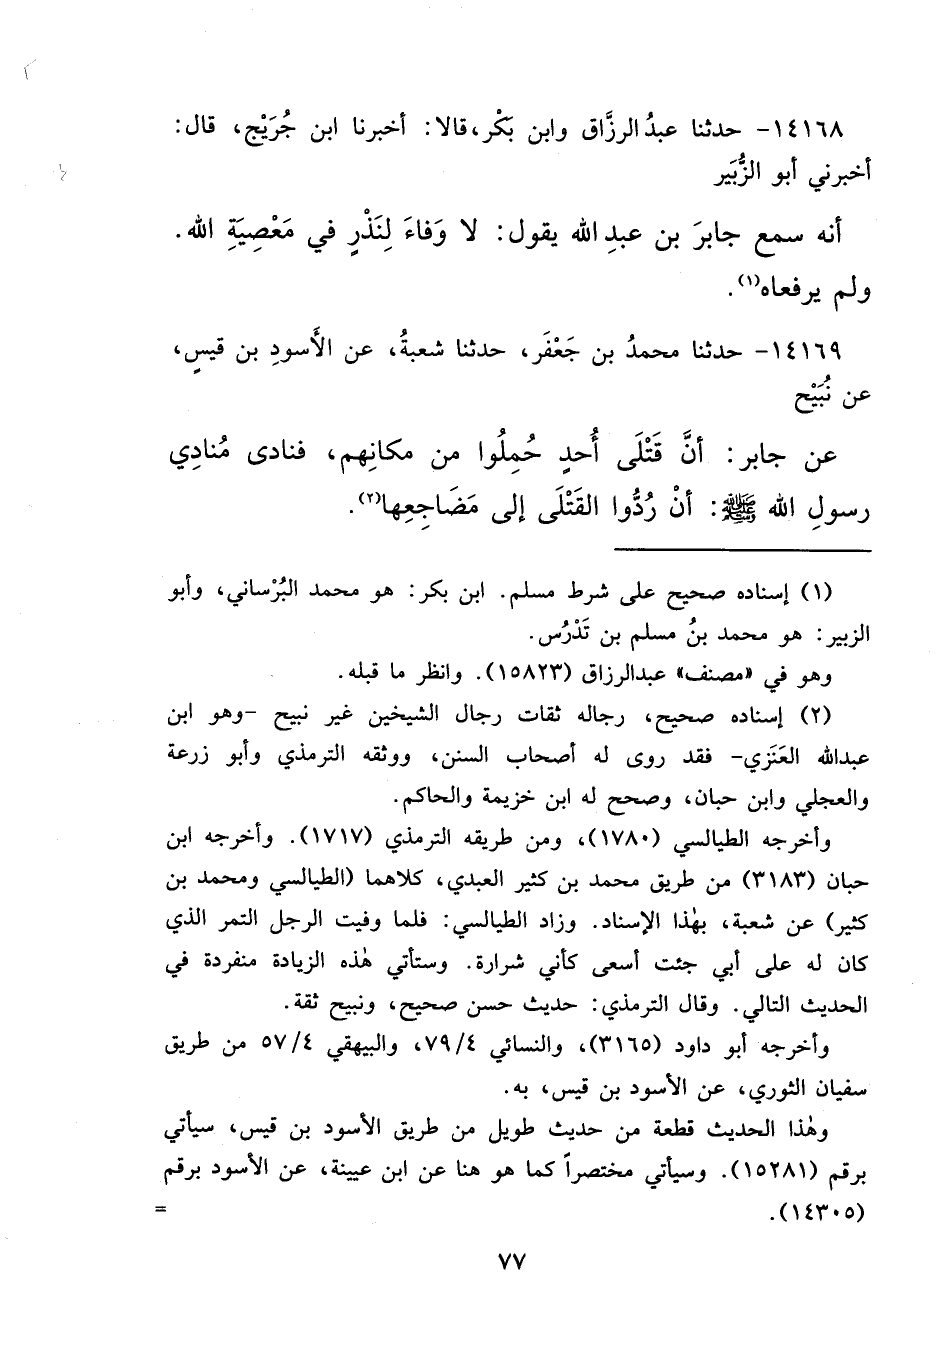 ١٤١٦٨- حدثنا عبدُ الرزَّاق وابن بَكْر، قالا: أخبرنا ابن جُرَيْج، قال:
أخبرني أبو الزُّبَير
أنه سمع جابرَ بن عبدِ الله يقول: لا وَفاءَ لِنَذْرٍ في مَعْصِيَةِ الله.
ولم يرفعاه(١).
١٤١٦٩- حدثنا محمدُ بن جَعْفَر، حدثنا شعبةُ، عن الأَسودِ بن قيسٍ،
عن نُبَيْح
عن جابر: أنَّ قَتْلَى أُحدٍ حُمِلُوا من مكانِهم، فنادى مُنادِي
رسولِ الله ﷺ: أنْ رُدُّوا القَتْلَى إلى مَضَاجِعِها(٢).
(١) إسناده صحيح على شرط مسلم. ابن بكر: هو محمد البُرْساني، وأبو
الزبير: هو محمد بنُ مسلم بن تَدْرُس.
وهو في «مصنف» عبدالرزاق (١٥٨٢٣). وانظر ما قبله.
(٢) إسناده صحيح، رجاله ثقات رجال الشيخين غير نبيح -وهو ابن
عبدالله العَنَزي- فقد روى له أصحاب السنن، ووثقه الترمذي وأبو زرعة
والعجلي وابن حبان، وصحح له ابن خزيمة والحاكم.
وأخرجه الطيالسي (١٧٨٠)، ومن طريقه الترمذي (١٧١٧). وأخرجه ابن
حبان (٣١٨٣) من طريق محمد بن كثير العبدي، كلاهما (الطيالسي ومحمد بن
كثير) عن شعبة، بهٰذا الإسناد. وزاد الطيالسي: فلما وفيت الرجل التمر الذي
كان له على أبي جئت أسعى كأني شرارة. وستأتي هٰذه الزيادة منفردة في
الحديث التالي. وقال الترمذي: حديث حسن صحيح، ونبيح ثقة.
وأخرجه أبو داود (٣١٦٥)، والنسائي ٧٩/٤، والبيهقي ٥٧/٤ من طريق
سفيان الثوري، عن الأسود بن قيس، به.
وهٰذا الحديث قطعة من حديث طويل من طريق الأسود بن قيس، سيأتي
برقم (١٥٢٨١). وسيأتي مختصراً كما هو هنا عن ابن عيينة، عن الأسود برقم
(١٤٣٠٥). =
٧٧